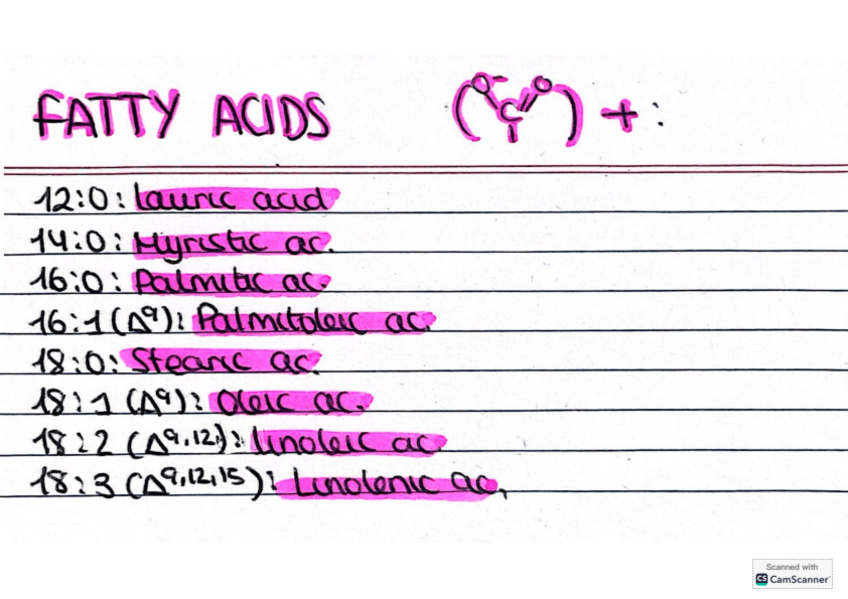 FATTY ACIDS (O⁻ C O) + :
12:0: Lauric acid
14:0: Myristic ac.
16:0: Palmitic ac.
16:1 (Δ⁹): Palmitoleic ac.
18:0: Stearic ac.
18:1 (Δ⁹): Oleic ac.
18:2 (Δ⁹,¹²): Linoleic ac.
18:3 (Δ⁹,¹²,¹⁵): Linolenic ac.
Scanned with
CS CamScanner